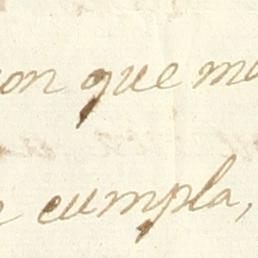 on que m
cumpla,